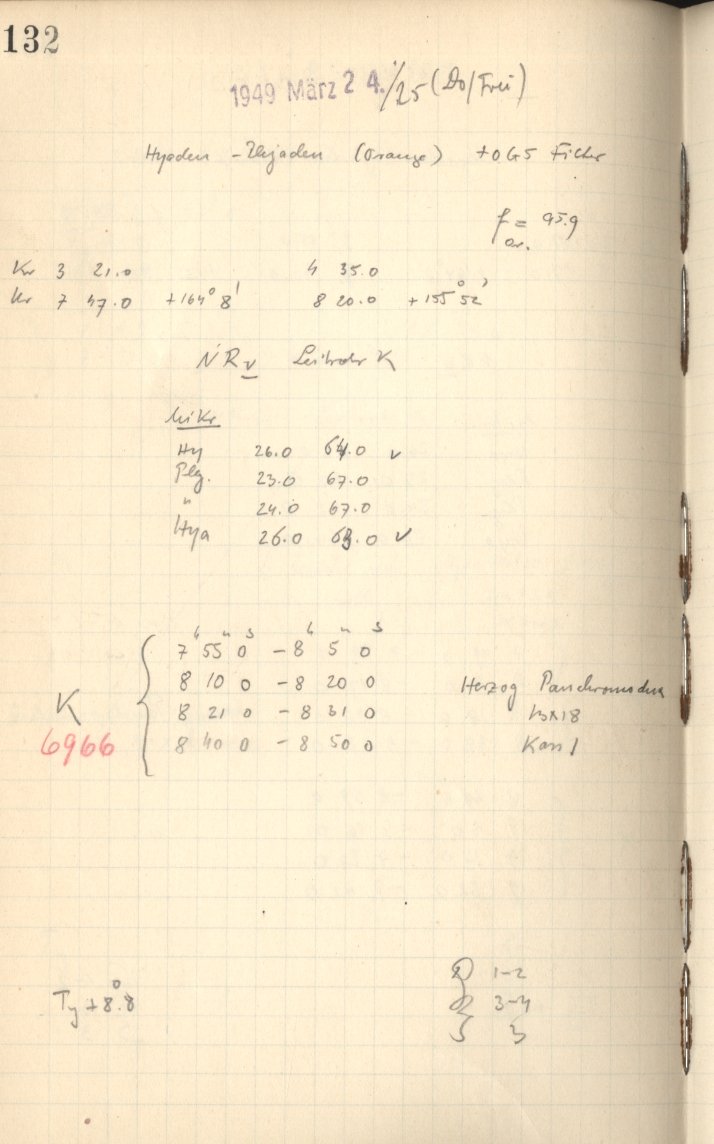 132
1949 März 24./25 (Do/Frei)
Hyaden - Plejaden (Orange) + OG5 Filter
f = 95.9
or.
Kr 3 21.0 4 35.0
Kr 7 47.0 +164° 8' 8 20.0 +155° 52'
NR v Leitrohr K
Mikr
Hy 26.0 64.0 v
Plej. 23.0 67.0
" 24.0 67.0
Hya 26.0 63.0 v
h m s h m s
7 55 0 - 8 5 0
8 10 0 - 8 20 0
8 21 0 - 8 31 0
8 40 0 - 8 50 0
K
6966
Herzog
13x18
Kass 1
Ty +8.°8
D 1-2
R 3-4
S 3